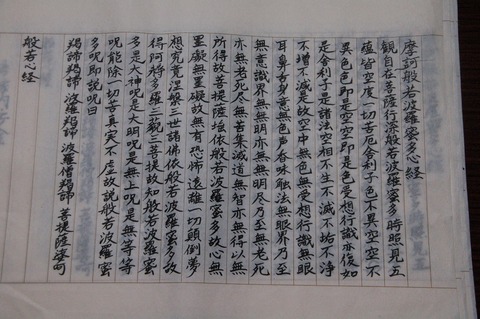 摩訶般若波羅蜜多心経
觀自在菩薩行深般若波羅蜜多時照見五
蘊皆空度一切苦厄舎利子色不異空空不
異色色即是空空即是色受想行識亦復如
是舎利子是諸法空相不生不滅不垢不浄
不増不減是故空中無色無受想行識無眼
耳鼻舌身意無色声香味触法無眼界乃至
無意識界無無明亦無無明尽乃至無老死
亦無老死尽無苦集滅道無智亦無得以無
所得故菩提薩埵依般若波羅蜜多故心無
罣礙無罣礙故無有恐怖遠離一切顛倒夢
想究竟涅槃三世諸佛依般若波羅蜜多故
得阿耨多羅三藐三菩提故知般若波羅蜜
多是大神呪是大明呪是無上呪是無等等
呪能除一切苦真実不虚故説般若波羅蜜
多呪即説呪曰
羯諦羯諦 波羅羯諦 波羅僧羯諦 菩提薩婆訶
般若心経